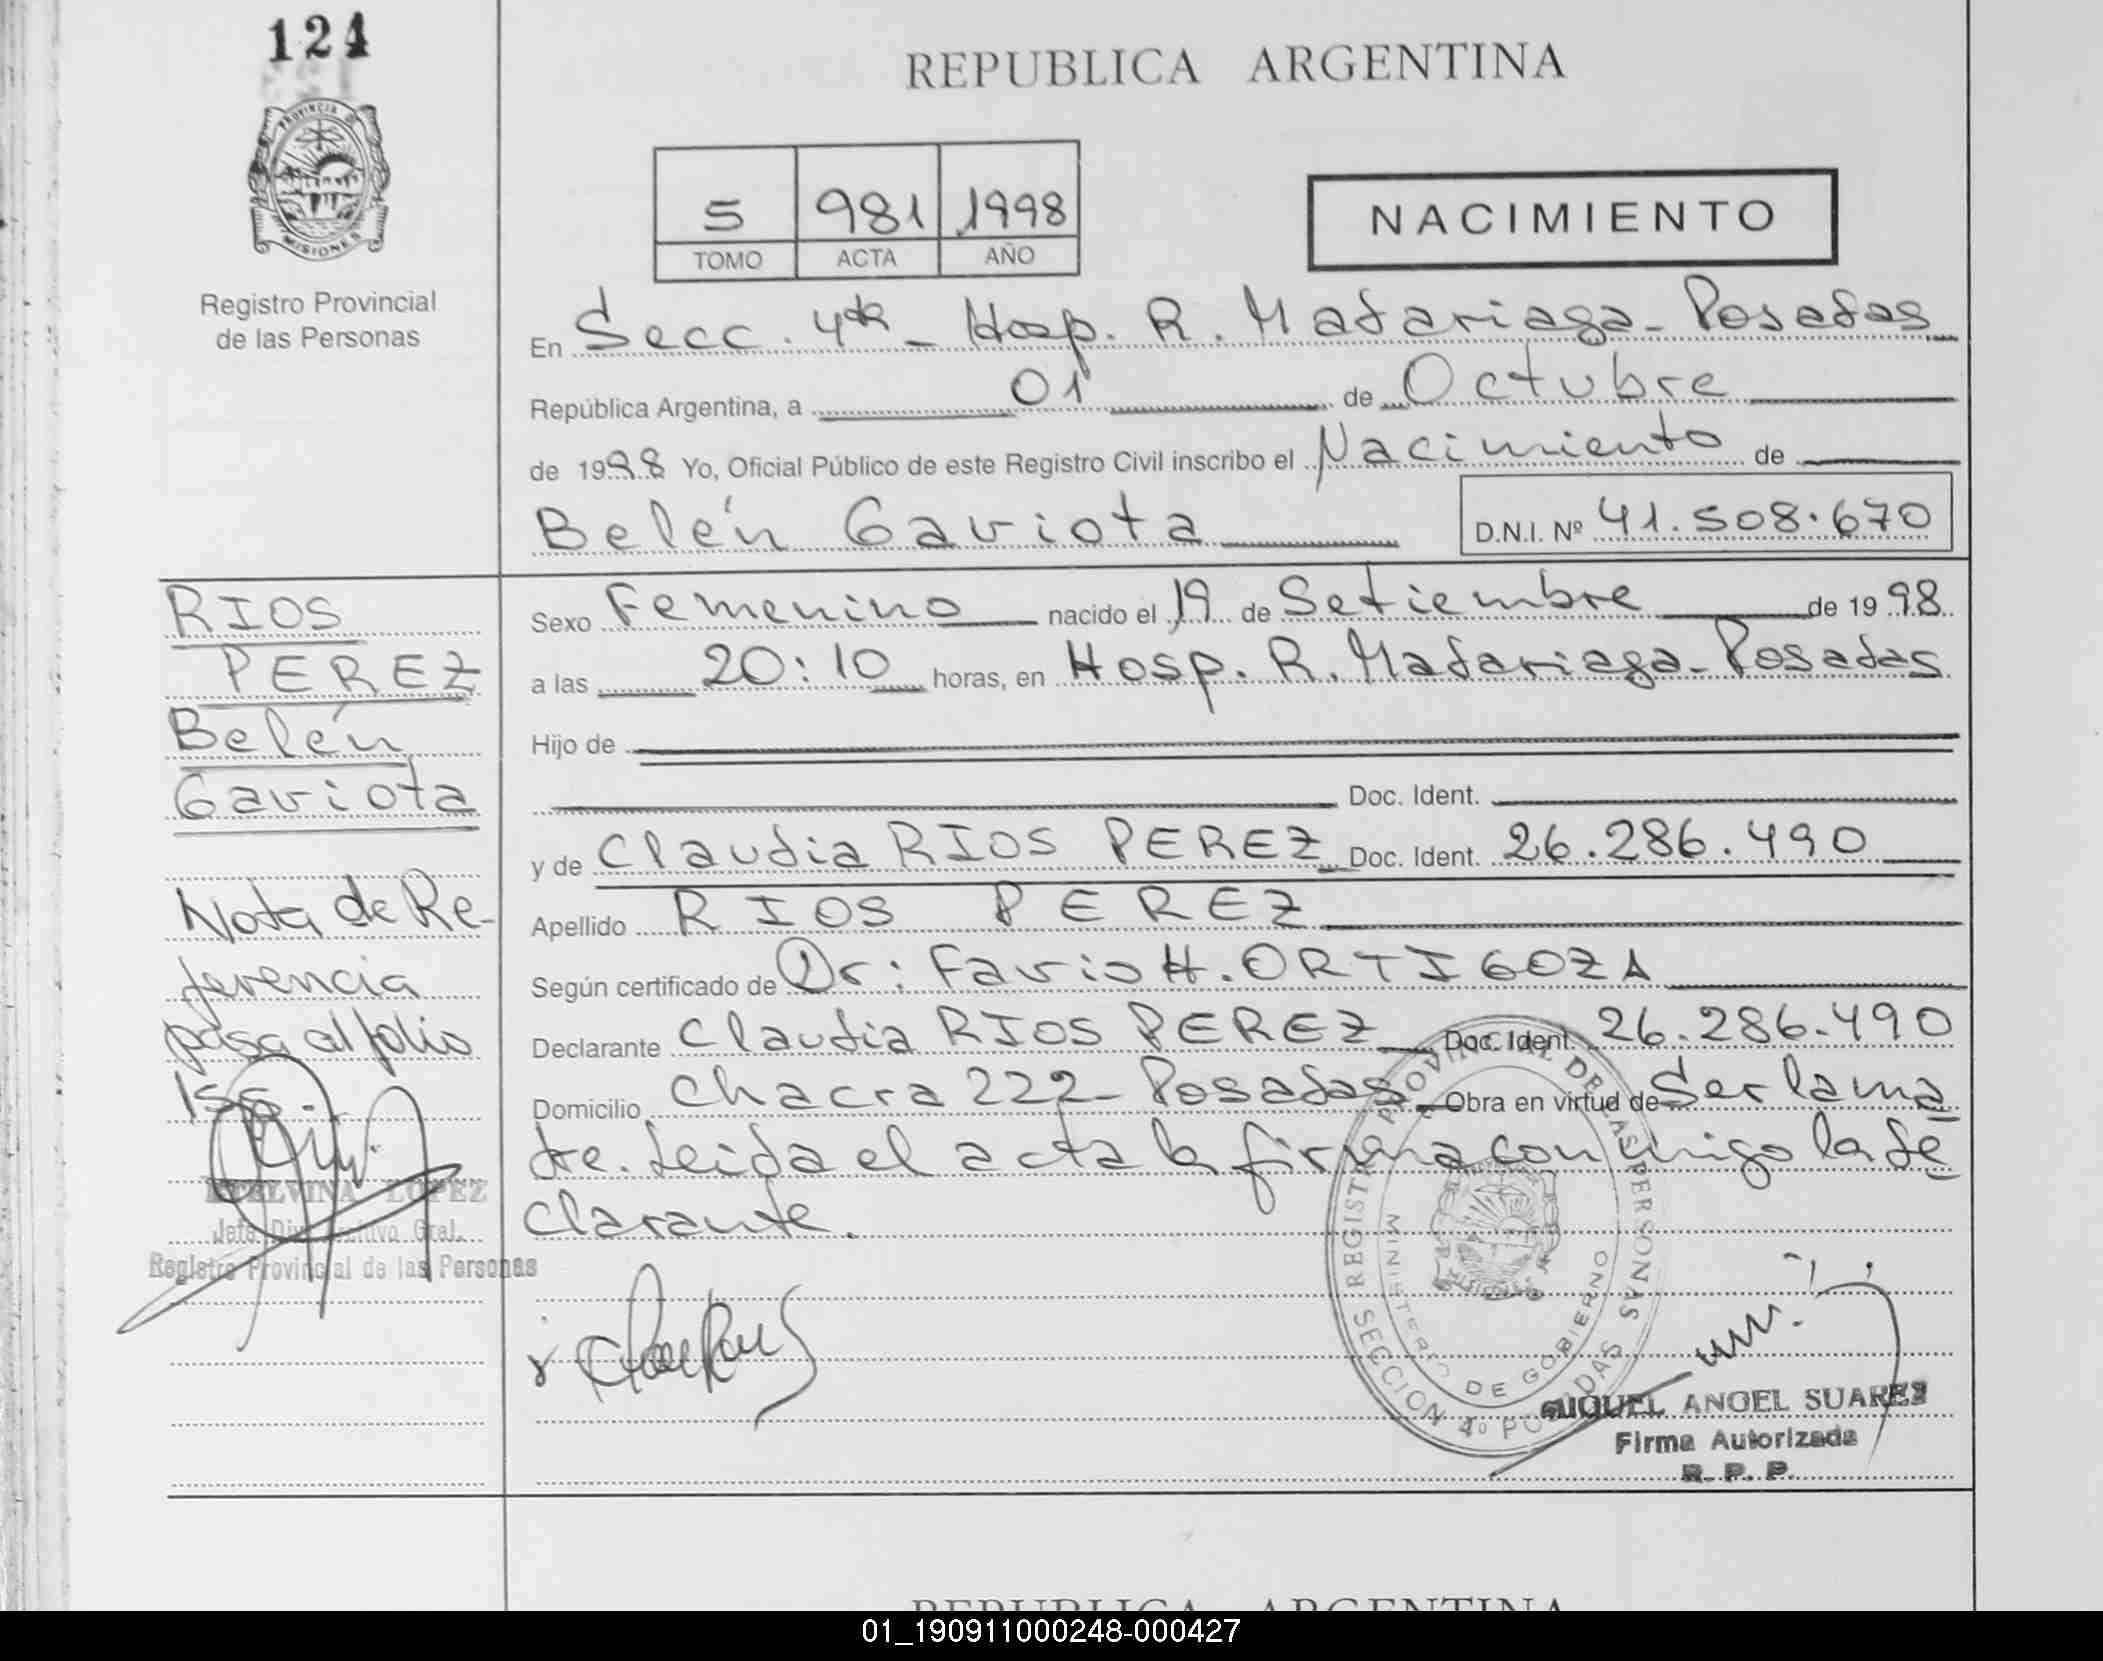 124
PROVINCIA DE
MISIONES
Registro Provincial
de las Personas
REPUBLICA ARGENTINA
5 981 1998
TOMO ACTA AÑO
NACIMIENTO
En Secc. 4ta - Hosp. R. Madariaga - Posadas
República Argentina, a 01 de Octubre
de 1998 Yo, Oficial Público de este Registro Civil inscribo el Nacimiento de
Belén Gaviota D.N.I. Nº 41.508.670
RIOS
PEREZ
Belén
Gaviota
Nota de Re-
ferencia
pasa al folio
Sexo Femenino nacido el 19 de Setiembre de 1998
a las 20:10 horas, en Hosp. R. Madariaga - Posadas
Hijo de
Doc. Ident.
y de Claudia RIOS PEREZ Doc. Ident. 26.286.490
Apellido RIOS PEREZ
Según certificado de Dr: Favio H. ORTIGOZA
Declarante Claudia RIOS PEREZ Doc. Ident. 26.286.490
Domicilio Chacra 222 - Posadas - Obra en virtud de Ser la ma
dre. Leida el acta la firma conmigo la de
clarante.
ETELVINA LOPEZ
Jefa Div. Archivo Gral.
Registro Provincial de las Personas
REGISTRO PROVINCIAL DE LAS PERSONAS
SECCION 4º POSADAS
MINISTERIO DE GOBIERNO
MISIONES
MIGUEL ANGEL SUAREZ
Firma Autorizada
R. P. P.
REPUBLICA ARGENTINA
01_190911000248-000427